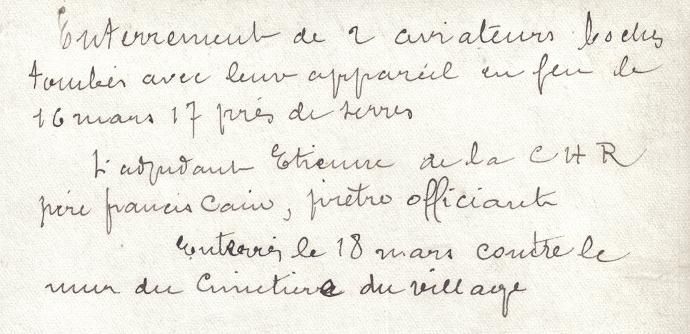 Enterrement de 2 aviateurs boches
tombés avec leur appareil en feu le
16 mars 17 près de serres
L'adjudant Etienne de la C H R
père francis Cain, prêtre officiant
Enterrés le 18 mars contre le
mur du Cimetière du village